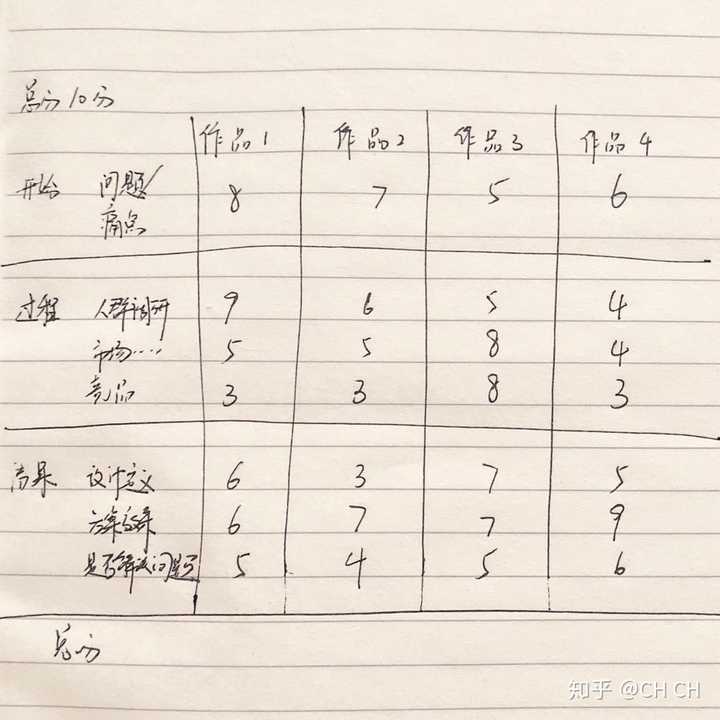 总分10分
作品1 作品2 作品3 作品4
开始 问题/ 8 7 5 6
痛点
过程 人群调研 9 6 5 4
市场····· 5 5 8 4
竞品 3 3 8 3
结果 设计定义 6 3 7 5
方案效果 6 7 7 9
是否解决问题 5 4 5 6
总分
知乎 @CH CH